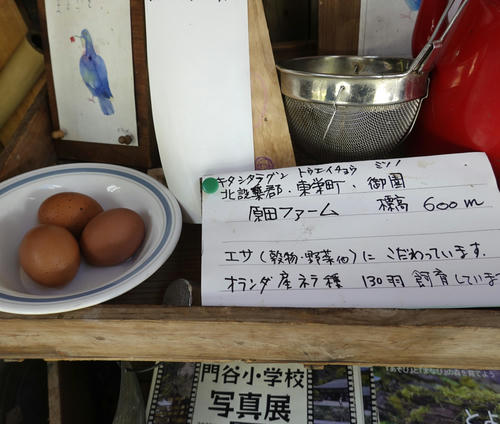 キタシタラグン トウエイチョウ ミソノ
北設楽郡・東栄町・御園
原田ファーム 標高 600m
エサ(穀物・野菜他)に こだわっています.
オランダ産ネラ種 130羽 飼育していま
門谷小学校
写真展
「あそび」と「まなび」の森を育てよう